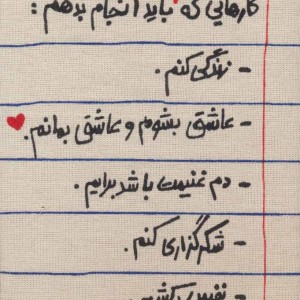 کارهایی که باید انجام بدهم :
- زندگی کنم.
- عاشق بشوم و عاشق بمانم.
- دم غنیمت باشد برایم.
- شکرگزاری کنم.
- نفس بکشم